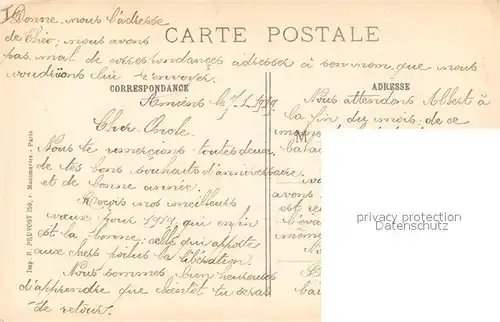 Donne nous l'adresse
de Théo; nous avons
pas mal de correspondances adressées à son nom que nous
voudrions lui renvoyer.
CARTE POSTALE
CORRESPONDANCE
ADRESSE
Amiens le 7.1.1919.
Cher Oncle.
Nous te remercions toutes deux
de tes bons souhaits d'anniversaire
et de bonne année.
Reçois nos meilleurs
vœux pour 1919, qui enfin
est la bonne: celle qui apporte
aux chers poilus la libération.
Nous sommes bien heureuses
d'apprendre que bientôt tu seras
de retour.
Nous attendons Albert à
la fin du mois de ce
M
avons
même
Imp. H. PRUVOST, Montmartre - Paris
privacy protection
Datenschutz